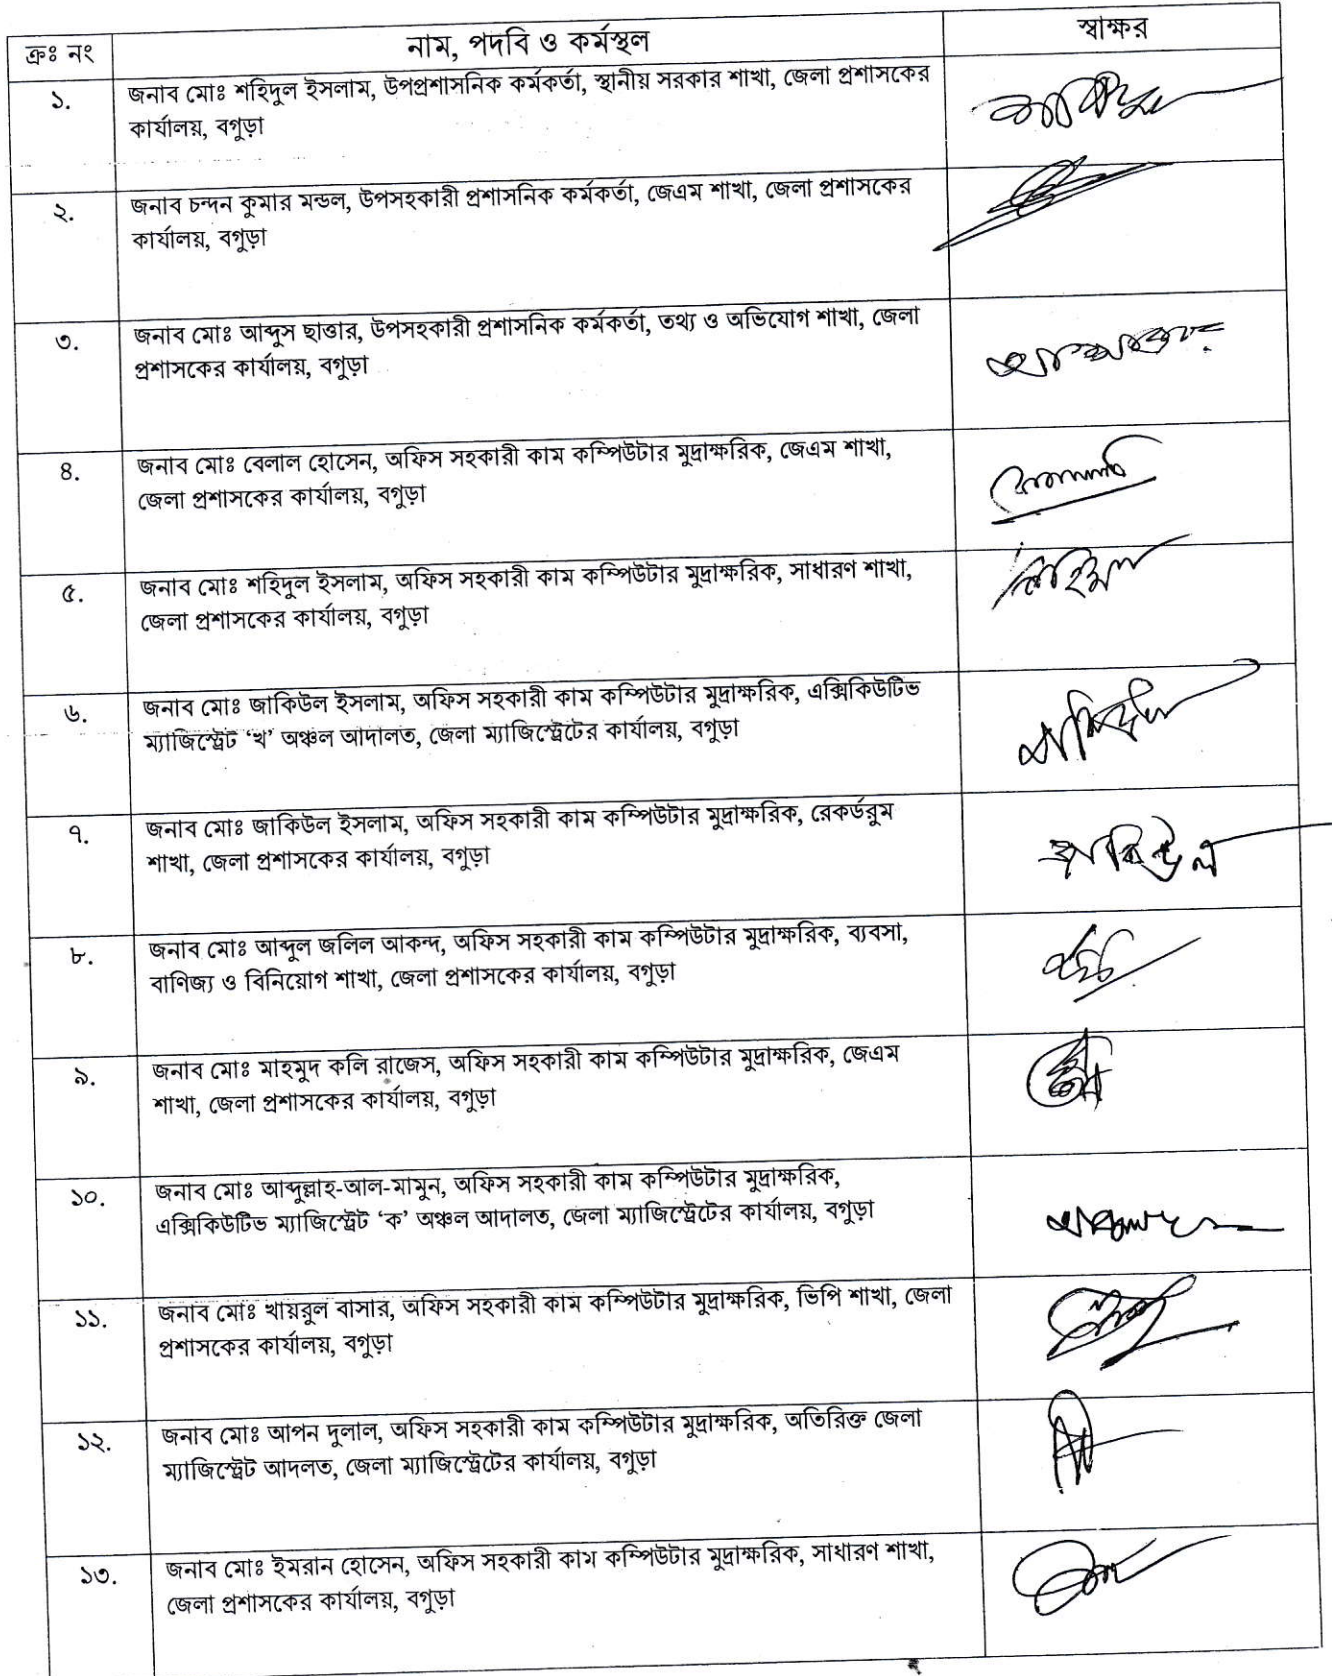 ক্রঃ নং নাম, পদবি ও কর্মস্থল স্বাক্ষর
১. জনাব মোঃ শহিদুল ইসলাম, উপপ্রশাসনিক কর্মকর্তা, স্থানীয় সরকার শাখা, জেলা প্রশাসকের
কার্যালয়, বগুড়া
২. জনাব চন্দন কুমার মন্ডল, উপসহকারী প্রশাসনিক কর্মকর্তা, জেএম শাখা, জেলা প্রশাসকের
কার্যালয়, বগুড়া
৩. জনাব মোঃ আব্দুস ছাত্তার, উপসহকারী প্রশাসনিক কর্মকর্তা, তথ্য ও অভিযোগ শাখা, জেলা
প্রশাসকের কার্যালয়, বগুড়া
৪. জনাব মোঃ বেলাল হোসেন, অফিস সহকারী কাম কম্পিউটার মুদ্রাক্ষরিক, জেএম শাখা,
জেলা প্রশাসকের কার্যালয়, বগুড়া
৫. জনাব মোঃ শহিদুল ইসলাম, অফিস সহকারী কাম কম্পিউটার মুদ্রাক্ষরিক, সাধারণ শাখা,
জেলা প্রশাসকের কার্যালয়, বগুড়া
৬. জনাব মোঃ জাকিউল ইসলাম, অফিস সহকারী কাম কম্পিউটার মুদ্রাক্ষরিক, এক্সিকিউটিভ
ম্যাজিস্ট্রেট ‘খ’ অঞ্চল আদালত, জেলা ম্যাজিস্ট্রেটের কার্যালয়, বগুড়া
৭. জনাব মোঃ জাকিউল ইসলাম, অফিস সহকারী কাম কম্পিউটার মুদ্রাক্ষরিক, রেকর্ডরুম
শাখা, জেলা প্রশাসকের কার্যালয়, বগুড়া
জাকিউল
৮. জনাব মোঃ আব্দুল জলিল আকন্দ, অফিস সহকারী কাম কম্পিউটার মুদ্রাক্ষরিক, ব্যবসা,
বাণিজ্য ও বিনিয়োগ শাখা, জেলা প্রশাসকের কার্যালয়, বগুড়া
৯. জনাব মোঃ মাহমুদ কলি রাজেস, অফিস সহকারী কাম কম্পিউটার মুদ্রাক্ষরিক, জেএম
শাখা, জেলা প্রশাসকের কার্যালয়, বগুড়া
১০. জনাব মোঃ আব্দুল্লাহ-আল-মামুন, অফিস সহকারী কাম কম্পিউটার মুদ্রাক্ষরিক,
এক্সিকিউটিভ ম্যাজিস্ট্রেট ‘ক’ অঞ্চল আদালত, জেলা ম্যাজিস্ট্রেটের কার্যালয়, বগুড়া
১১. জনাব মোঃ খায়রুল বাসার, অফিস সহকারী কাম কম্পিউটার মুদ্রাক্ষরিক, ভিপি শাখা, জেলা
প্রশাসকের কার্যালয়, বগুড়া
১২. জনাব মোঃ আপন দুলাল, অফিস সহকারী কাম কম্পিউটার মুদ্রাক্ষরিক, অতিরিক্ত জেলা
ম্যাজিস্ট্রেট আদলত, জেলা ম্যাজিস্ট্রেটের কার্যালয়, বগুড়া
১৩. জনাব মোঃ ইমরান হোসেন, অফিস সহকারী কাম কম্পিউটার মুদ্রাক্ষরিক, সাধারণ শাখা,
জেলা প্রশাসকের কার্যালয়, বগুড়া